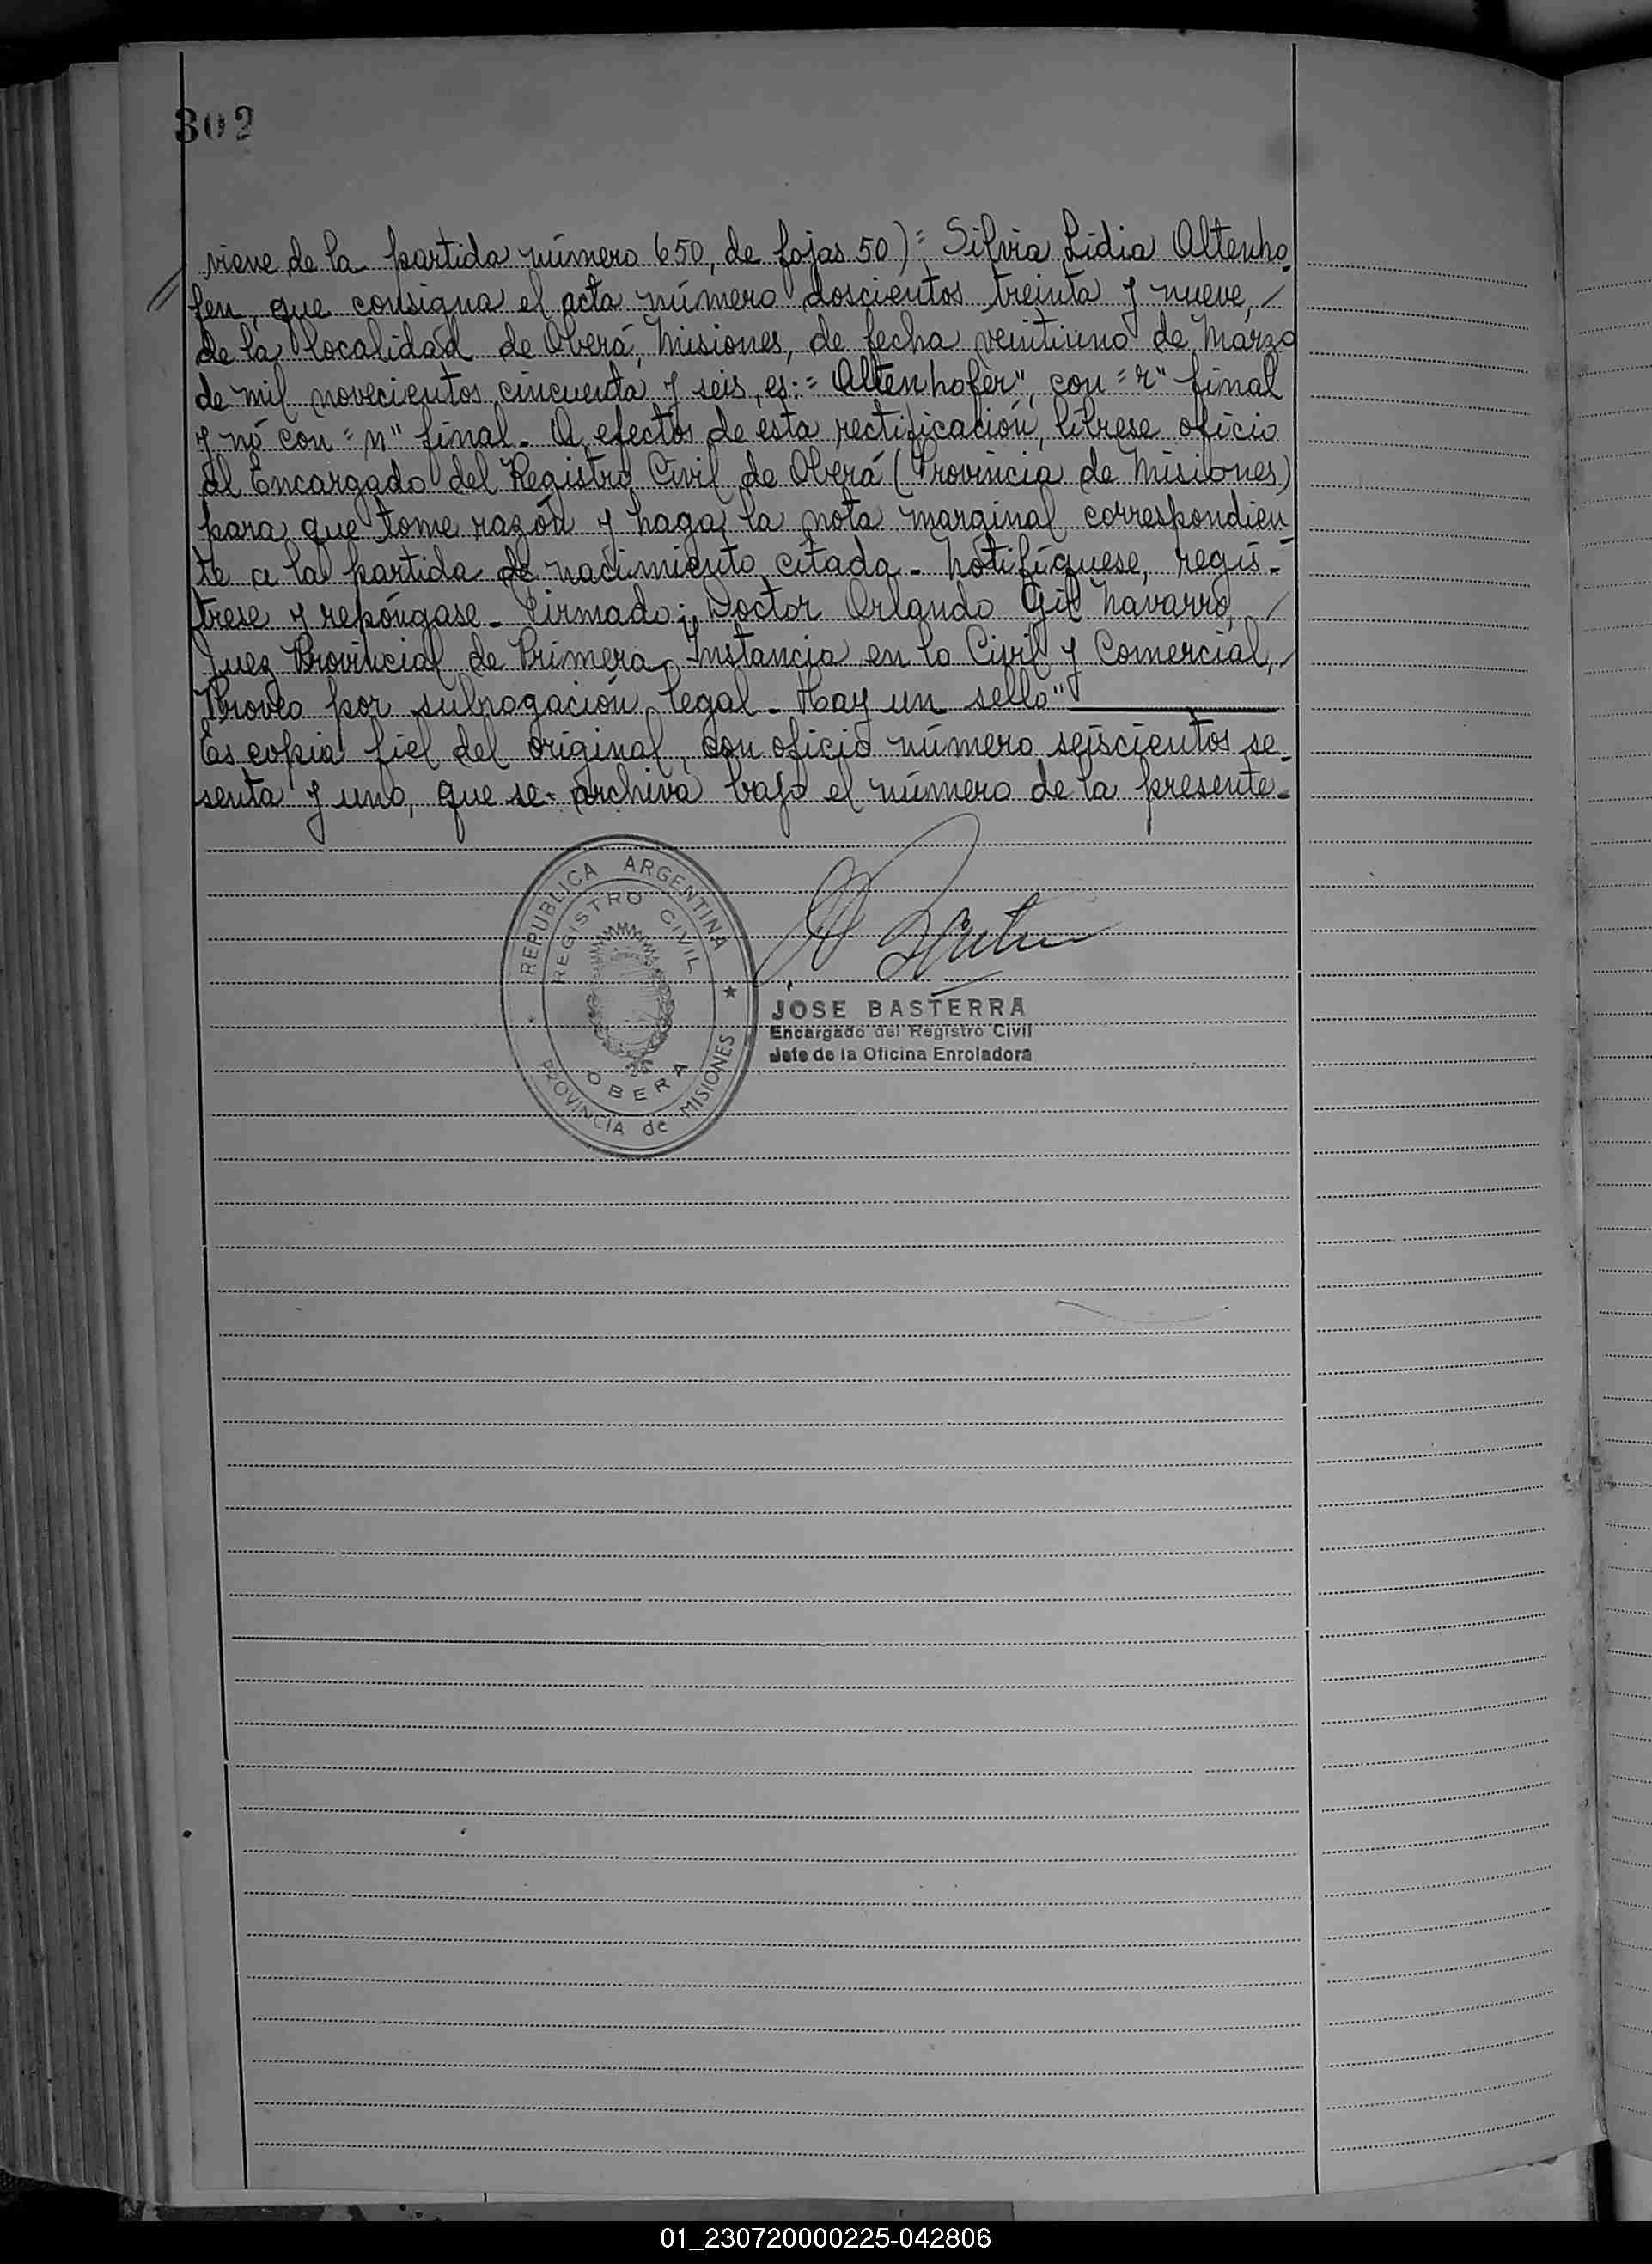 302
viene de la partida número 650, de fojas 50) = Silvia Lidia Altenho-
fen, que consigna el acta número doscientos treinta y nueve, /
de la localidad de Oberá, Misiones, de fecha veintiuno de Marzo
de mil novecientos cincuenta y seis, es: = Altenhofer", con = r" final
y nó con = n" final. A efectos de esta rectificación, líbrese oficio
al Encargado del Registro Civil de Oberá (Provincia de Misiones)
para que tome razón y haga la nota marginal correspondien
te a la partida de nacimiento citada - Notifíquese, regís-
trese y repóngase. Firmado: Doctor Orlando Gil Navarro, /
Juez Provincial de Primera Instancia en lo Civil y Comercial, /
Proveo por subrogación legal - Hay un sello"
Es copia fiel del original, con oficio número seiscientos se-
senta y uno, que se archiva bajo el número de la presente.
REPUBLICA ARGENTINA
REGISTRO CIVIL
OBERA
PROVINCIA de MISIONES
JOSE BASTERRA
Encargado del Registro Civil
Jefe de la Oficina Enroladora
01_230720000225-042806